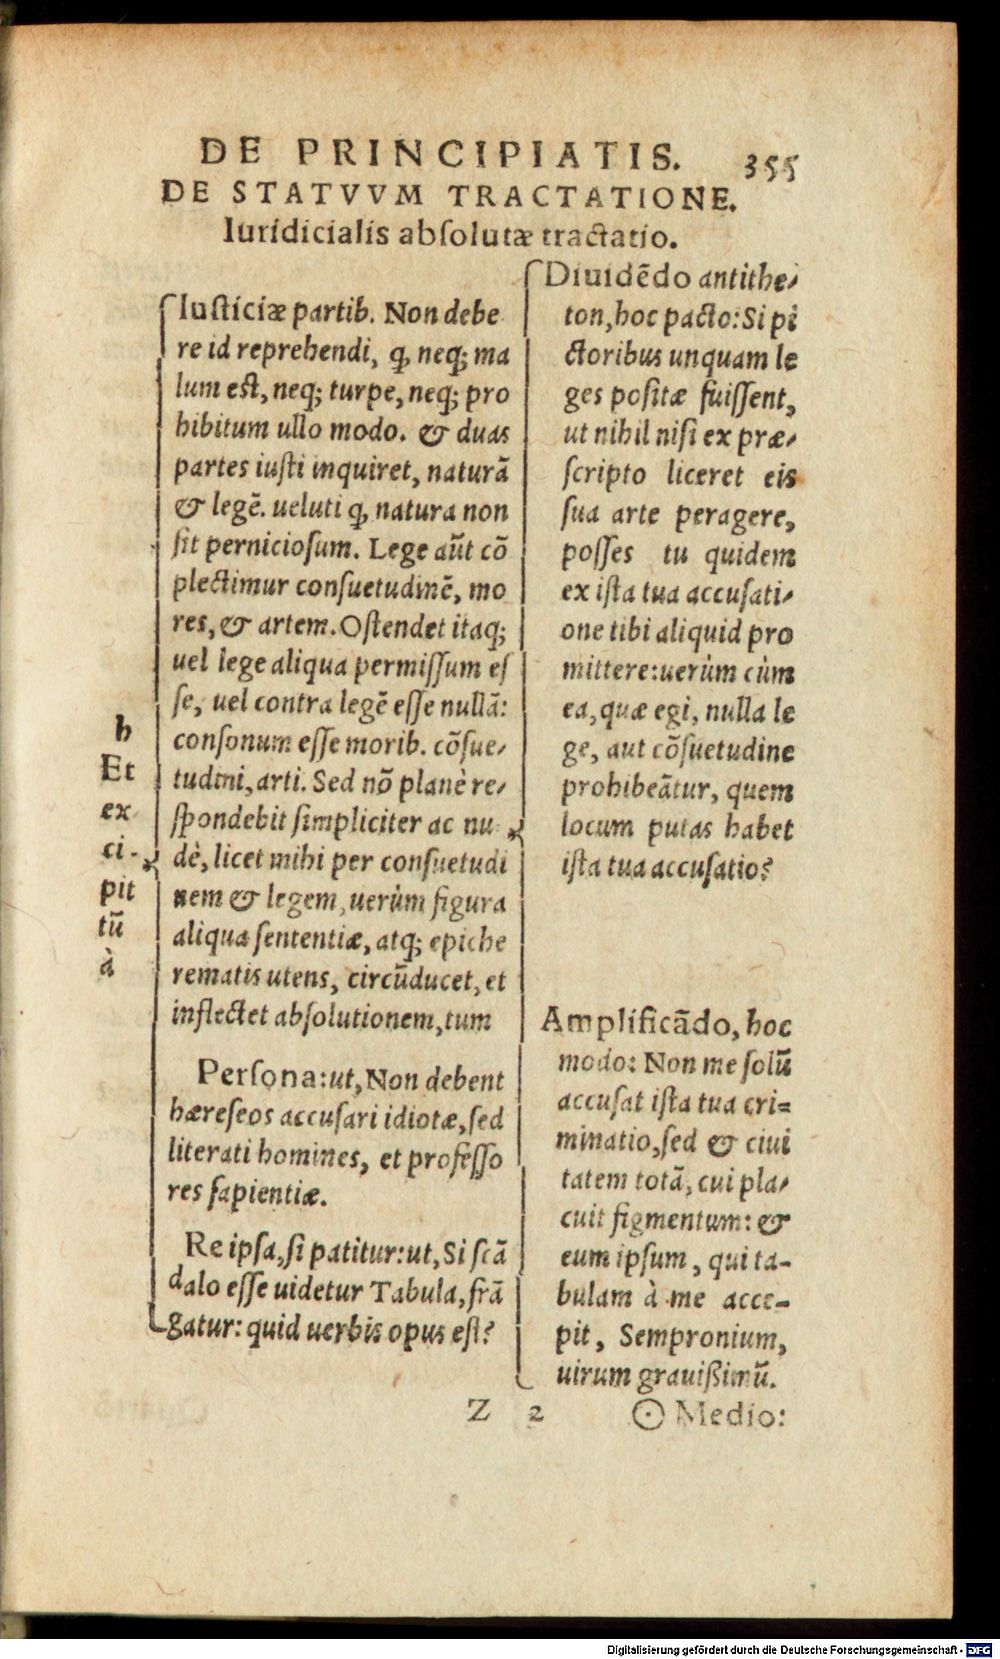 DE PRINCIPIATIS. 355
DE STATVVM TRACTATIONE.
Iuridicialis absolutæ tractatio.
h
Et
ex
ci-
pit
tũ
à
Iusticiæ partib. Non debe
re id reprehendi, ꝙ neq; ma
lum est, neq; turpe, neq; pro
hibitum ullo modo. & duas
partes iusti inquiret, naturã
& legẽ. ueluti ꝙ natura non
sit perniciosum. Lege aũt cõ
plectimur consuetudinẽ, mo
res, & artem. Ostendet itaq;
uel lege aliqua permissum es
se, uel contra legẽ esse nullã:
consonum esse morib. cõsue-
tudini, arti. Sed nõ planè re-
spondebit simpliciter ac nu
dè, licet mihi per consuetudi
nem & legem, uerùm figura
aliqua sententiæ, atq; epiche
rematis utens, circũducet, et
inflectet absolutionem, tum
Persona: ut, Non debent
hæreseos accusari idiotæ, sed
literati homines, et professo
res sapientiæ.
Re ipsa, si patitur: ut, Si scã
dalo esse uidetur Tabula, frã
gatur: quid uerbis opus est?
Diuidẽdo antithe-
ton, hoc pacto: Si pi
ctoribus unquam le
ges positæ fuissent,
ut nihil nisi ex præ-
scripto liceret eis
sua arte peragere,
posses tu quidem
ex ista tua accusati-
one tibi aliquid pro
mittere: uerùm cùm
ea, quæ egi, nulla le
ge, aut cõsuetudine
prohibeãtur, quem
locum putas habet
ista tua accusatio?
Amplificãdo, hoc
modo: Non me solũ
accusat ista tua cri-
minatio, sed & ciui
tatem totã, cui pla-
cuit figmentum: &
eum ipsum, qui ta-
bulam à me acce-
pit, Sempronium,
uirum grauißimũ.
Z 2 ☉ Medio:
Digitalisierung gefördert durch die Deutsche Forschungsgemeinschaft - DFG